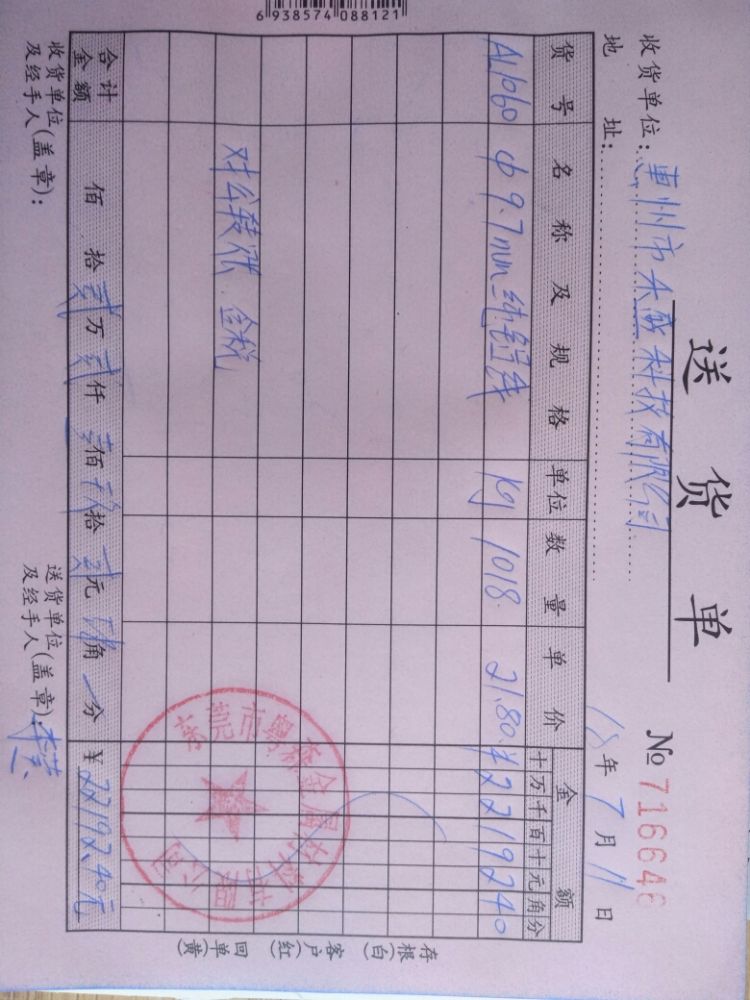 送货单
№ 716646
收货单位: 惠州市
科技有限公司
地 址:
18年7月11日
货 号 名 称 及 规 格 单位 数 量 单 价 金 额
十万千百十元角分
AL1060 φ9.7mm 纯铝线 kg 1018 21.80 ¥2219240
对公转账 含税
合计金额 佰 拾贰万贰仟壹佰玖拾贰元肆角 分 ¥22192.40元
收货单位及经手人(盖章):
送货单位及经手人(盖章):
存根(白) 客户(红) 回单(黄)
东莞市粤 金属材料有限公司
6 938574 088121